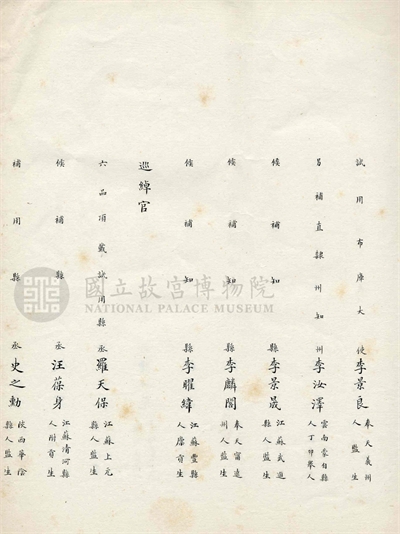 試用布庫大使李景良奉天義州人監生
呂補直隸州知州李汝澤雲南蒙自縣人丁卯舉人
候補知縣李景晟江蘇武進縣人監生
候補知縣李麟閣奉天甯遠州人監生
候補知縣李耀緯江蘇豐縣人廩貢生
巡綽官
六品頂戴試用縣丞羅天保江蘇上元縣人監生
候補縣丞汪葆身江蘇清河縣人附貢生
補用縣丞史之勳陝西華陰縣人監生
國立故宮博物院
NATIONAL PALACE MUSEUM